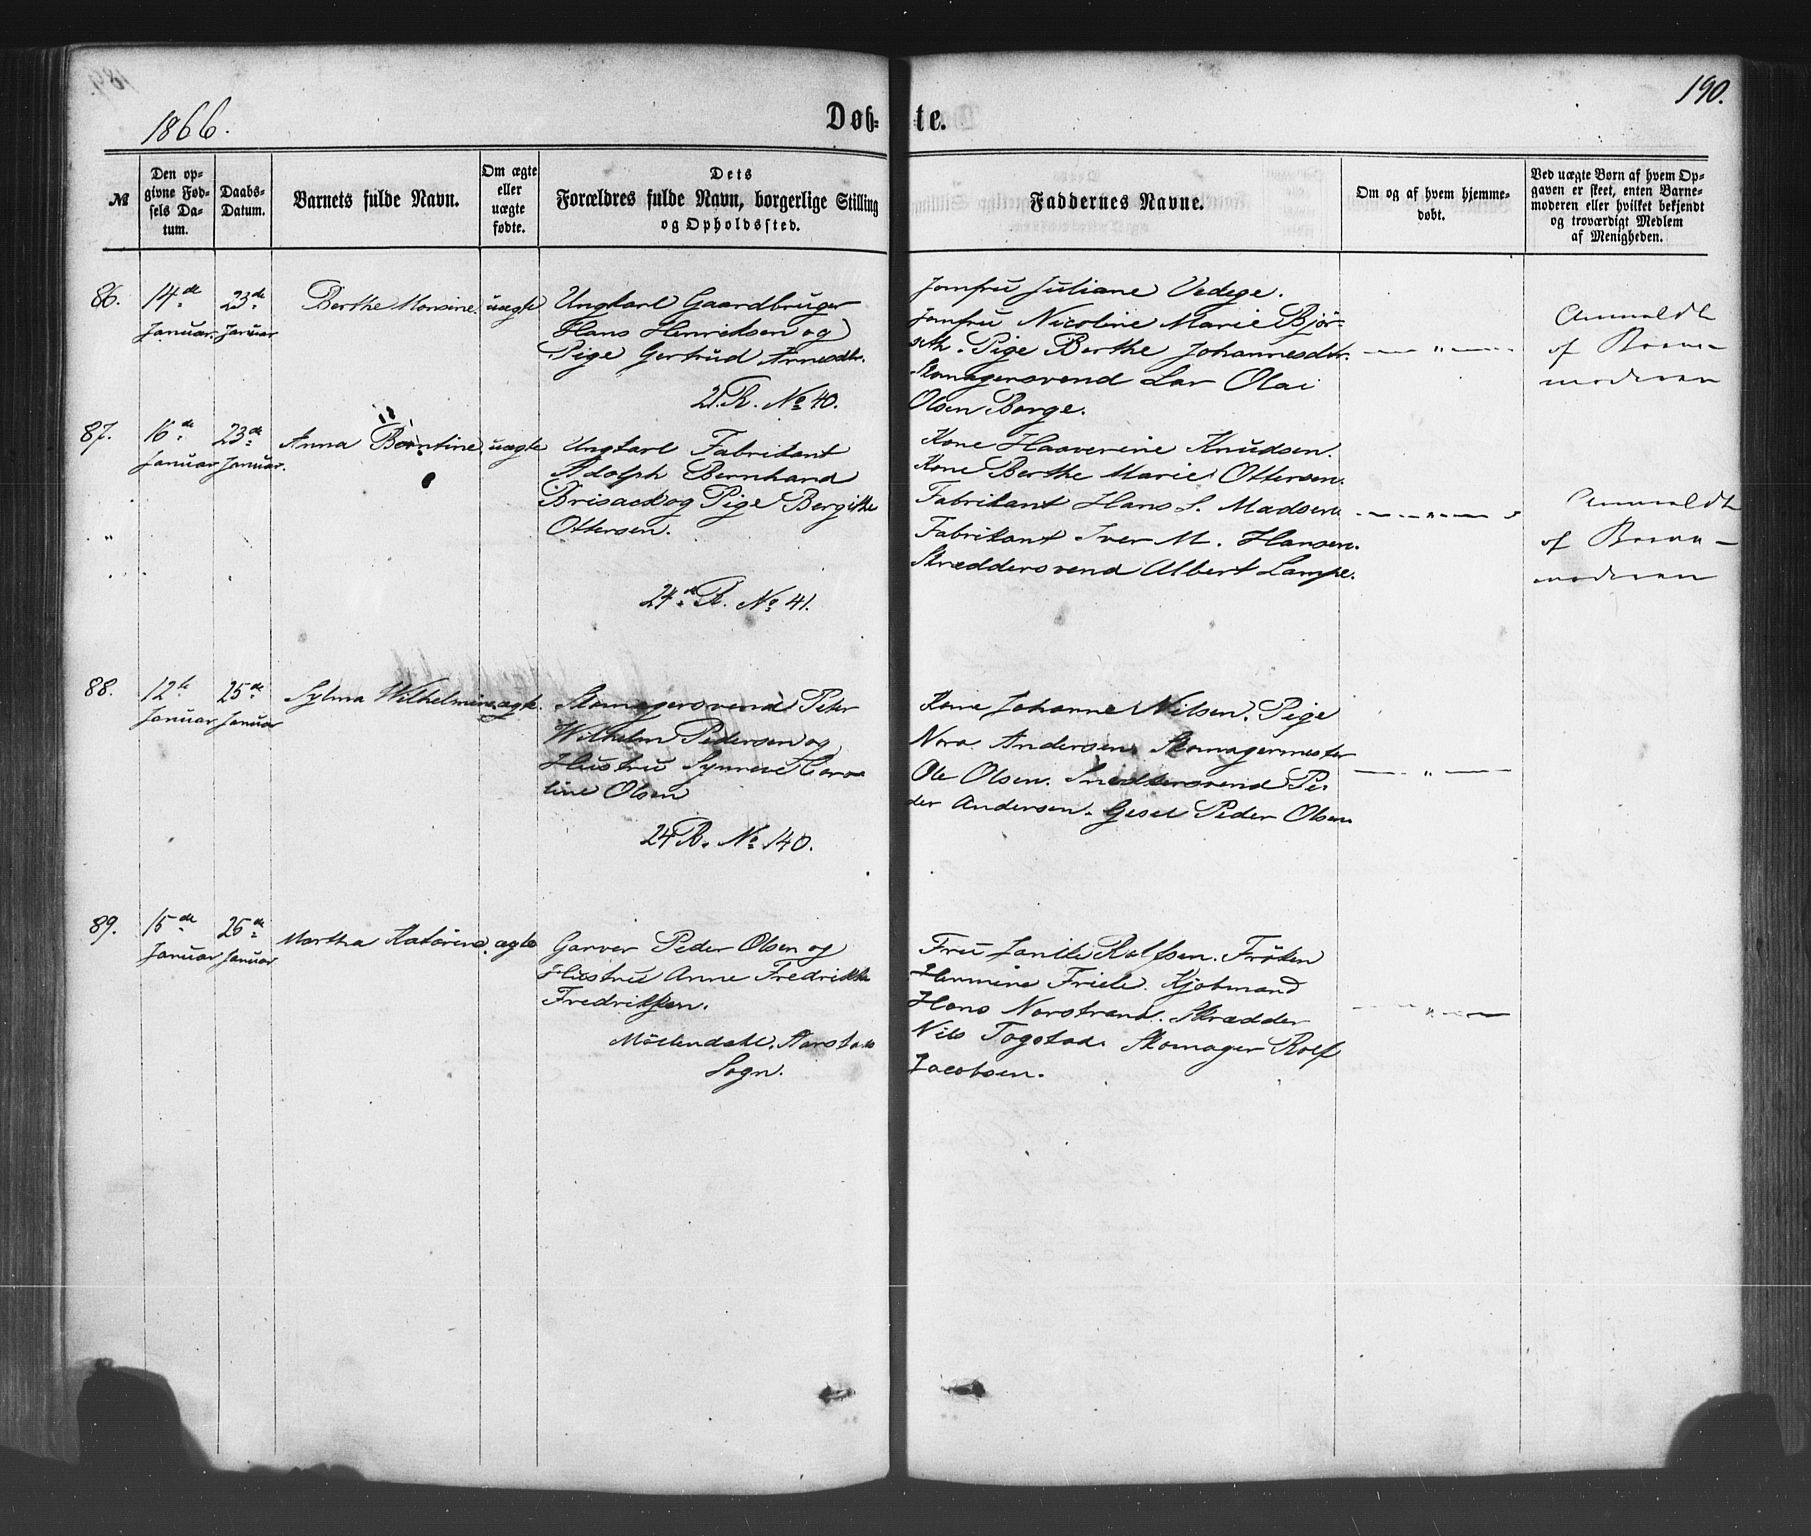 1866.
Døb-
te.
190.
№
Den op-
givne Fød-
sels Da-
tum.
Daabs-
Datum.
Barnets fulde Navn.
Om ægte
eller
uægte
fødte.
Dets
Forældres fulde Navn, borgerlige Stilling
og Opholdssted.
Faddernes Navne.
Om og af hvem hjemme-
døbt.
Ved uægte Børn af hvem Op-
gaven er skeet, enten Barne-
moderen eller hvilket bekjendt
og troværdigt Medlem
af Menigheden.
86.
14de
Januar.
23de
Januar
Berthe Monsine.
uægte
Ungkarl Gaardbruger
Hans Henriksen og
Pige Gertrud Arnesdtr.
21. R. No 40.
Jomfru Juliane Vedege.
Jomfru Nicoline Marie Bjør-
seth. Pige Berthe Johannesdtr.
Skomagersvend Lar Olai
Olsen Borge.
Anmeldt
af Barne-
moderen
87.
16de
Januar
23de
Januar.
Anna Berntine.
uægte
Ungkarl Fabrikant
Adolph Bernhard
Brisack og Pige Bergithe
Ottersen.
24de R. No 41.
Kone Haaverine Knudsen.
Kone Berthe Marie Ottersen.
Fabrikant Hans L. Madsen
Fabrikant Iver M. Hansen.
Skræddersvend Albert Lampe.
Anmeldt
af Barne-
moderen
88.
12te
Januar
25de
Januar
Sylma Wilhelmine.
ægte.
Skomagersvend Peter
Wilhelm Pedersen og
Hustru Synneve Caro-
line Olsen
24 R. No 140.
Kone Johanne Nilsen. Pige
Nora Andersen. Skomagermester
Ole Olsen. Snedkersvend Pe-
der Andersen. Gesel Peder Olsen
89.
15de
Januar
26de
Januar
Martha Katarina.
ægte
Garver Peder Olsen og
Hustru Anne Fredrikke
Fredriksen.
Möllendahl, Aarstads
Sogn.
Fru Janike Rolfsen. Frøken
Hermine Friele. Kjøbmand
Hans Norstrand. Skrædder
Nils Togstad. Skomager Rolf
Jacobsen.